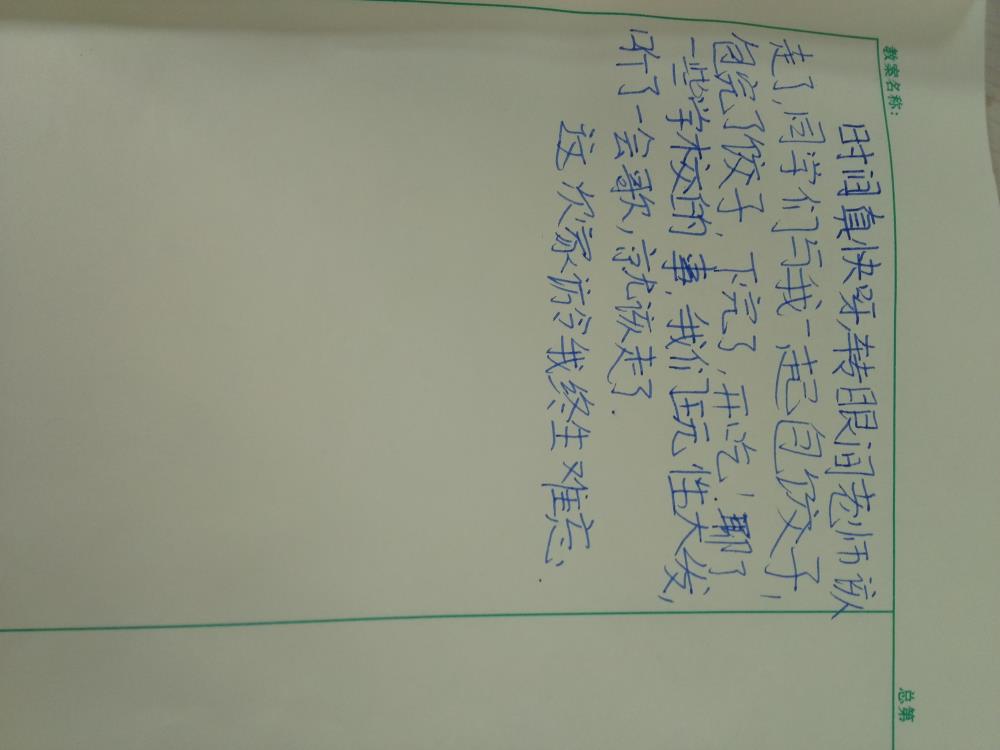 教案名称：
总第
时间真快呀,转眼间老师该
走了,同学们与我一起包饺子,
包完了饺子 下完了,开吃！聊了
一些学校的事,我们玩性大发,
听了一会歌,就该走了.
这次家访令我终生难忘.